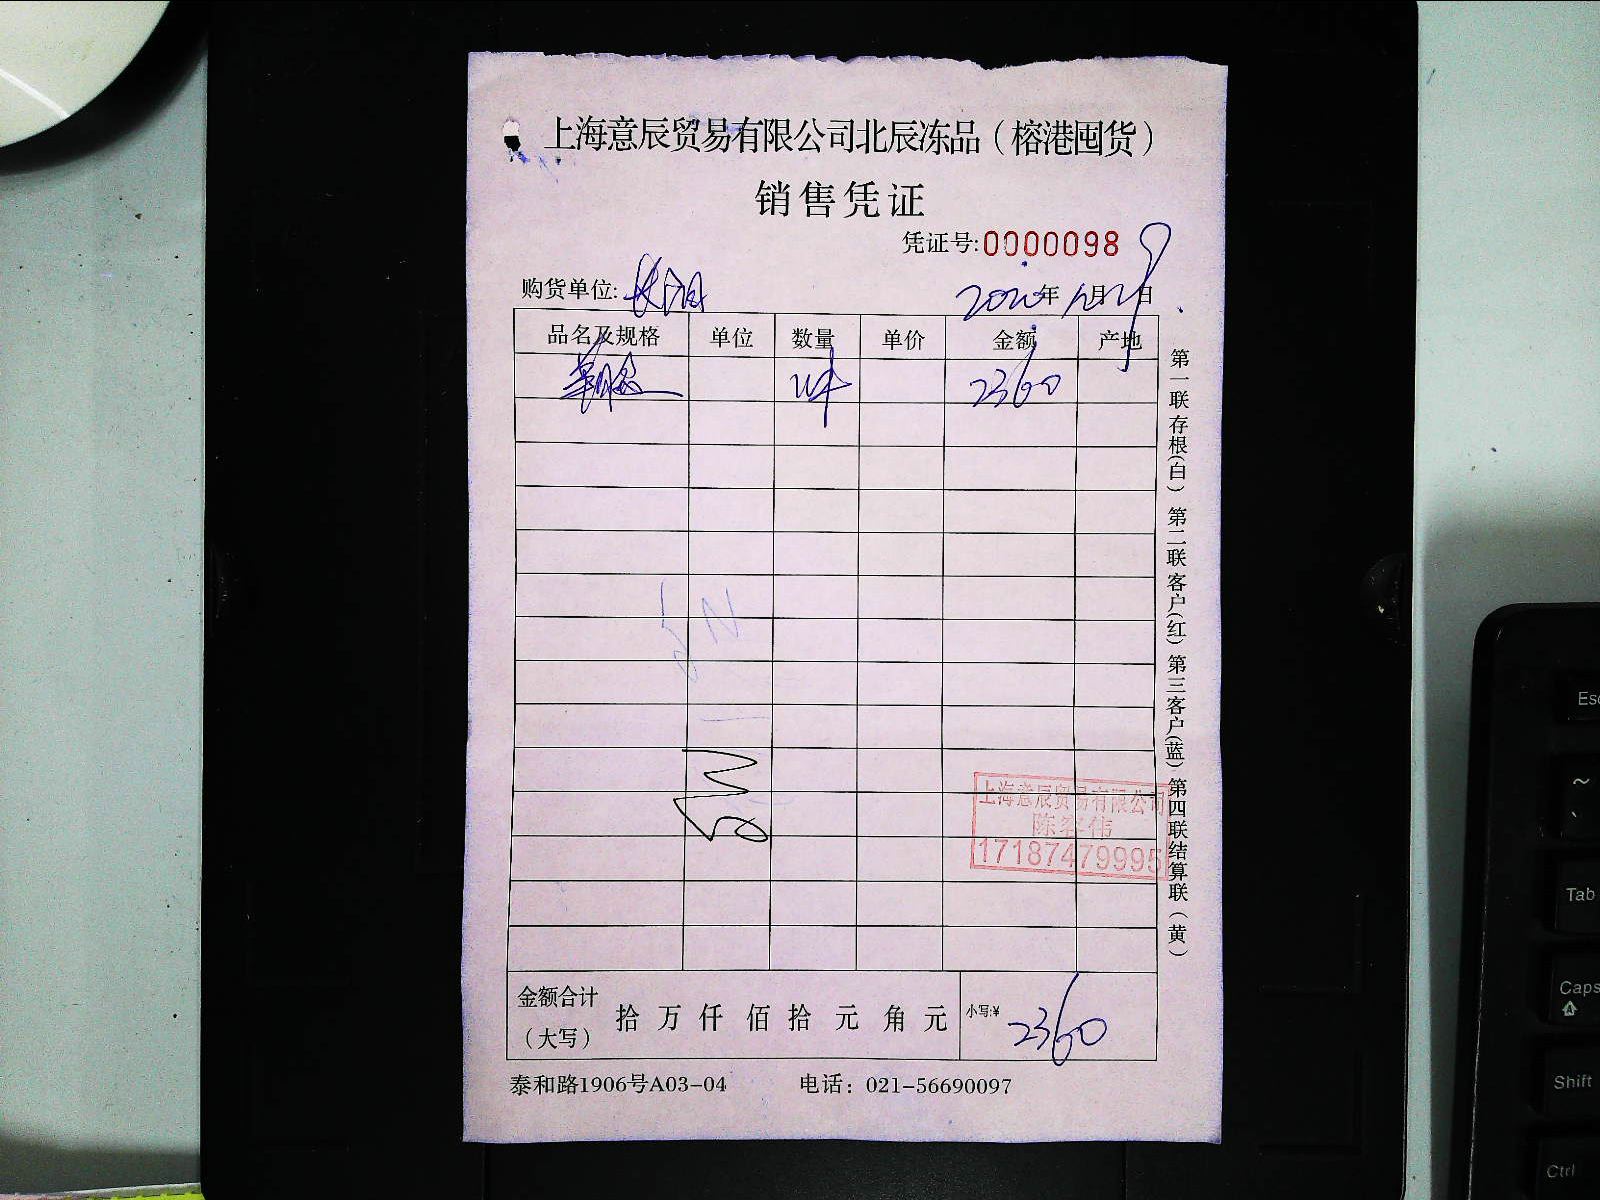 上海意辰贸易有限公司北辰冻品（榕港囤货）
销售凭证
凭证号:0000098
购货单位:
2020年12月29日
品名及规格 单位 数量 单价 金额 产地
2360
第一联存根(白) 第二联客户(红) 第三客户(蓝) 第四联结算联(黄)
上海意辰贸易有限公司
陈容伟
17187479995
金额合计
（大写）
拾 万 仟 佰 拾 元 角 元
小写:¥ 2360
泰和路1906号A03-04 电话：021-56690097
Esc
~
Tab
Caps
Shift
Ctrl